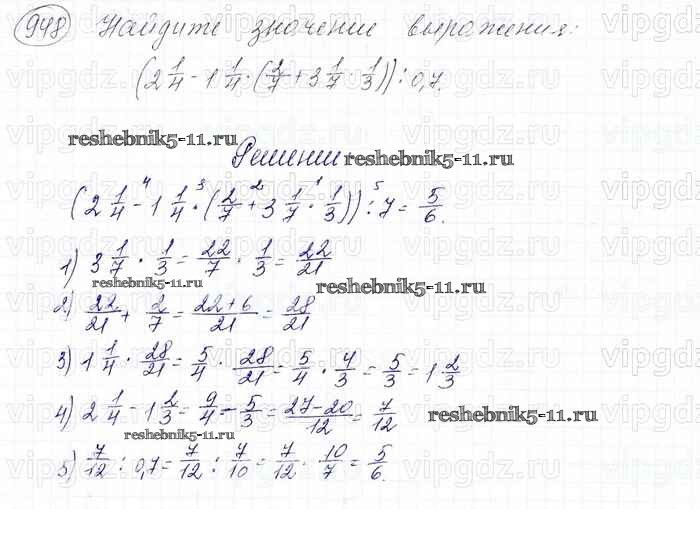 948 Найдите значение выражения:
(2 1/4 - 1 1/4 · (2/7 + 3 1/7 · 1/3)) : 0,7.
reshebnik5-11.ru
Решении reshebnik5-11.ru
(2 1/4 -⁴ 1 1/4 ·³ (2/7 +² 3 1/7 ·¹ 1/3)) :⁵ 7 = 5/6.
1) 3 1/7 · 1/3 = 22/7 · 1/3 = 22/21
reshebnik5-11.ru reshebnik5-11.ru
2) 22/21 + 2/7 = 22+6/21 = 28/21
3) 1 1/4 · 28/21 = 5/4 · 28/21 = 5/4 · 4/3 = 5/3 = 1 2/3
4) 2 1/4 - 1 2/3 = 9/4 - 5/3 = 27-20/12 = 7/12 reshebnik5-11.ru
reshebnik5-11.ru
5) 7/12 : 0,7 = 7/12 : 7/10 = 7/12 · 10/7 = 5/6.
vipgdz.ru